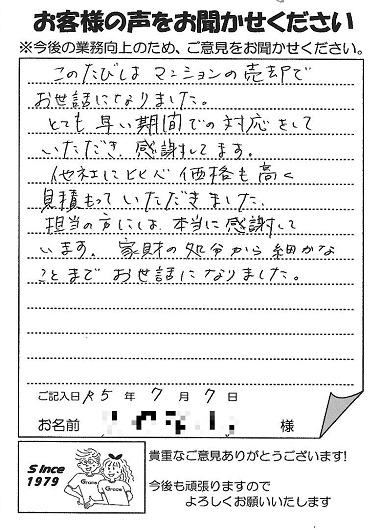 お客様の声をお聞かせください
※今後の業務向上のため、ご意見をお聞かせください。
このたびは マンションの売却で
お世話になりました。
とても 早い期間での対応をして
いただき、感謝してます。
他社にくらべ 価格も高く
見積もっていただきました。
担当の方には、本当に感謝して
います。 家財の処分から細かな
ことまで お世話になりました。
ご記入日 R5 年 7 月 7 日
お名前 様
貴重なご意見ありがとうございます!
Since
1979
Grace
Grace
今後も頑張りますので
よろしくお願いいたします